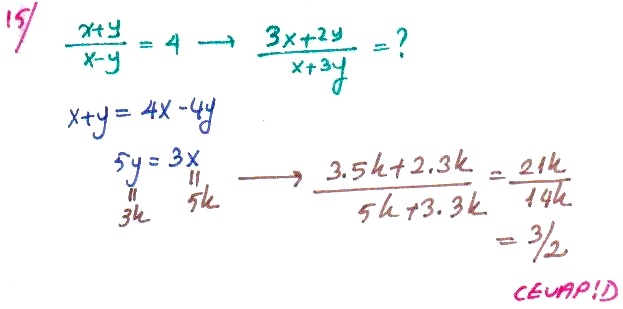 15/
(x+y)/(x-y) = 4 → (3x+2y)/(x+3y) = ?
x+y = 4x-4y
5y = 3x
= =
3k 5k
→ (3.5k+2.3k)/(5k+3.3k) = 21k/14k
= 3/2
CEVAP!D